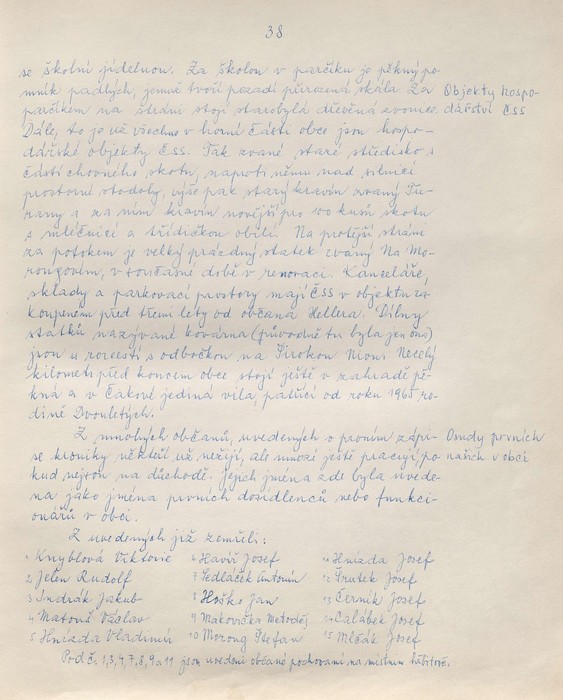 38
se školní jídelnou. Za školou v parčíku je pěkný po-
mník padlých, jemuž tvoří pozadí přirozená skála. Za
parčíkem na stráni stojí starobylá dřevěná zvonice.
Objekty hospo-
dářství ČSS
Dále, to je už všechno v horní části obce jsou hospo-
dářské objekty ČSS. Tak zvané staré středisko s
částí chovného skotu, naproti němu nad silnicí
prostorné stodoly, výše pak starý kravín zvaný Tu-
rany a za ním kravín novější pro 100 kusů skotu
s mléčnicí a třídičkou obilí. Na protější stráni
za potokem je velký prázdný statek zvaný Na Mo-
rongovím, v současné době v renovaci. Kanceláře,
sklady a parkovací prostory mají ČSS v objektu za-
koupeném před třemi lety od občana Hellera. Dílny
statků nazývané kovárna (původně tu byla jen ona)
jsou u rozcestí s odbočkou na Širokou Nivu. Necelý
kilometr před koncem obce stojí ještě v zahradě pě-
kná a v Čakové jediná vila, patřící od roku 1965 ro-
dině Dvouletých.
Z mnohých občanů, uvedených v prvním zápi-
se kroniky někteří už nežijí, ale mnozí ještě pracují, po-
kud nejsou na důchodě. Jejich jména zde byla uvede-
na jako jména prvních dosídlenců nebo funkci-
onářů v obci.
Osudy prvních
našich v obci
Z uvedených již zemřeli:
1 Knyblová Viktorie 6 Havíř Josef 11 Hnízda Josef
2 Jelen Rudolf 7 Sedláček Antonín 12 Smutek Josef
3 Indrák Jakub 8 Hoško Jan 13 Černík Josef
4 Matouš Václav 9 Makovička Metoděj 14 Calábek Josef
5 Hnízda Vladimír 10 Morong Štefan 15 Mlčák Josef
Pod č. 1, 3, 4, 7, 8, 9 a 11 jsou uvedeni občané pochovaní na místním hřbitově.